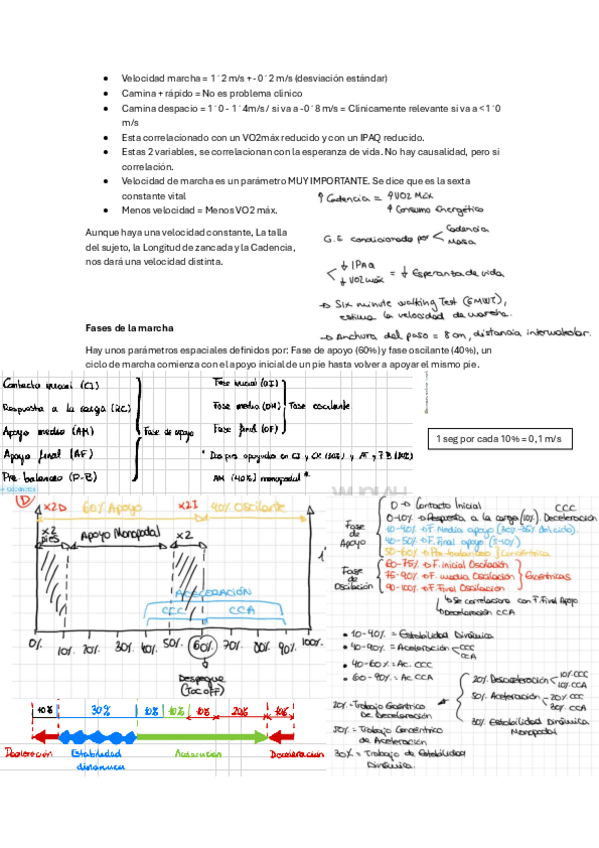 • Velocidad marcha = 1´2 m/s +- 0´2 m/s (desviación estándar)
• Camina + rápido = No es problema clínico
• Camina despacio = 1´0 - 1´4m/s / si va a -0´8 m/s = Clinicamente relevante si va a <1´0
m/s
• Esta correlacionado con un VO2máx reducido y con un IPAQ reducido.
• Estas 2 variables, se correlacionan con la esperanza de vida. No hay causalidad, pero si
correlación.
• Velocidad de marcha es un parámetro MUY IMPORTANTE. Se dice que es la sexta
constante vital
• Menos velocidad = Menos VO2 máx.
↑ Cadencia = ↑ VO2 Máx
↑ Consumo Energético
Aunque haya una velocidad constante, La talla
del sujeto, la Longitud de zancada y la Cadencia,
nos dará una velocidad distinta.
G.E condicionado por < Cadencia
Masa
< ↓ IPAQ
↓ VO2 máx = ↓ Esperanza de vida
→ Six minute walking Test (6MWT),
estima la velocidad de marcha.
→ Anchura del paso = 8 cm, distancia intermaleolar.
Fases de la marcha
Hay unos parámetros espaciales definidos por: Fase de apoyo (60%) y fase oscilante (40%), un
ciclo de marcha comienza con el apoyo inicial de un pie hasta volver a apoyar el mismo pie.
Contacto inicial (CI)
Respuesta a la carga (RC)
Apoyo medio (AM)
Apoyo final (AF)
Pre balanceo (P-B)
Fase de apoyo
Fase inicial (OI)
Fase media (OM)
Fase final (OF)
Fase oscilante
AM (40%) monopodal *
1 seg por cada 10% = 0,1 m/s
x2D 60% Apoyo x2I 40% Oscilante
x2 pies
Apoyo Monopodal x2
1'
ACELERACIÓN
CCC CCA
0% 10% 20% 30% 40% 50% 60% 70% 80% 90% 100%
Despegue
(Toe off)
10% 30% 10% 10% 10% 20% 10%
Deceleración Estabilidad
dinámica Aceleración Deceleración
Fase
de
Apoyo
0 → Contacto Inicial CCC
0-10% → Respuesta a la carga (10%). Deceleración
40-50% → F. Final apoyo
50-60% → Pre-balanceo } Concéntrica
Fase
de
Oscilación
60-75% → F. inicial Oscilación
75-90% → F. media Oscilación
90-100% → F. Final Oscilación
Se correlaciona con F. Final Apoyo
Deceleración CCA
• 10-40% = Estabilidad Dinámica
• 40-90% = Aceleración < CCC
CCA
• 40-60% = Ac. CCC
• 60-90% = Ac. CCA
20% Desaceleración < 10% CCC
10% CCA
50% Aceleración < 20% CCC
30% CCA
30% Estabilidad Dinámica
Monopodal
20% - Trabajo Excéntrico
de Deceleración
50% = Trabajo Concéntrico
de Aceleración
30% = Trabajo de Estabilidad
Dinámica.